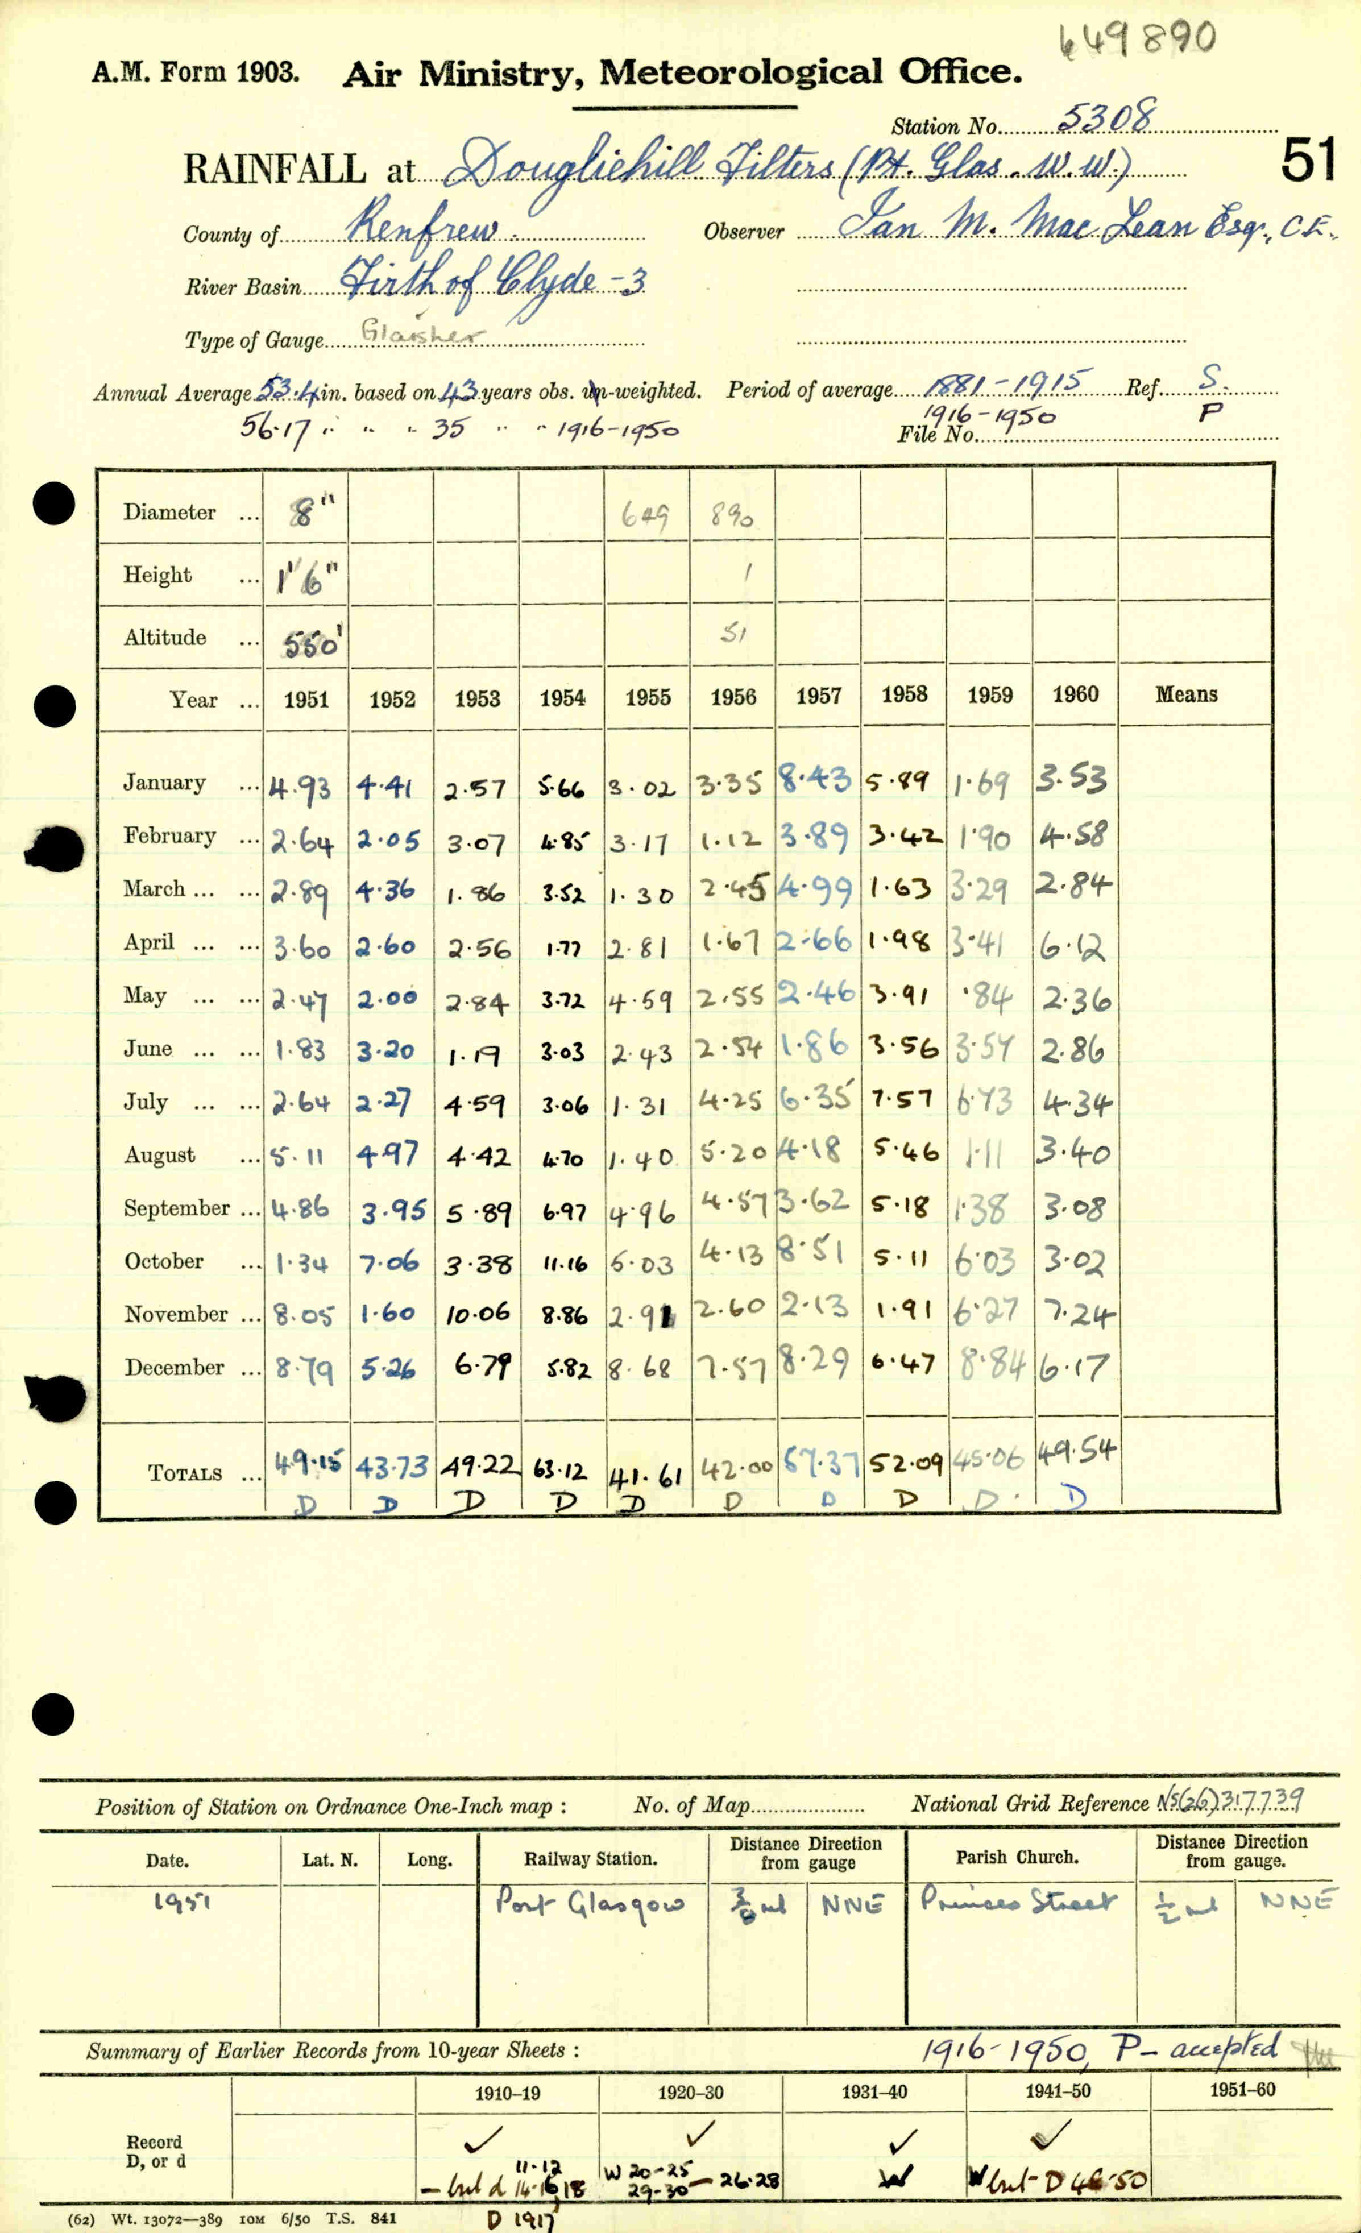 649890
A.M. Form 1903. Air Ministry, Meteorological Office.
Station No. 5308
RAINFALL at Dougliehill Filters (Pt. Glas. W.W.) 51
County of Renfrew. Observer Ian M. MacLean Esq., C.E.
River Basin Firth of Clyde -3
Type of Gauge Glaisher
Annual Average 53.4 in. based on 43 years obs. un-weighted. Period of average 1881-1915 Ref. S.
56.17 " " " 35 " " 1916-1950 1916-1950 P
File No.
Diameter ... 8" 649 890
Height ... 1'6" 1
Altitude ... 550' 51
Year ... 1951 1952 1953 1954 1955 1956 1957 1958 1959 1960 Means
January ... 4.93 4.41 2.57 5.66 3.02 3.35 8.43 5.89 1.69 3.53
February ... 2.64 2.05 3.07 4.85 3.17 1.12 3.89 3.42 1.90 4.58
March ... ... 2.89 4.36 1.86 3.52 1.30 2.45 4.99 1.63 3.29 2.84
April ... ... 3.60 2.60 2.56 1.77 2.81 1.67 2.66 1.98 3.41 6.12
May ... ... 2.47 2.00 2.84 3.72 4.59 2.55 2.46 3.91 .84 2.36
June ... ... 1.83 3.20 1.19 3.03 2.43 2.54 1.86 3.56 3.57 2.86
July ... ... 2.64 2.27 4.59 3.06 1.31 4.25 6.35 7.57 6.73 4.34
August ... 5.11 4.97 4.42 4.70 1.40 5.20 4.18 5.46 1.11 3.40
September ... 4.86 3.95 5.89 6.97 4.96 4.57 3.62 5.18 1.38 3.08
October ... 1.34 7.06 3.38 11.16 5.03 4.13 8.51 5.11 6.03 3.02
November ... 8.05 1.60 10.06 8.86 2.91 2.60 2.13 1.91 6.27 7.24
December ... 8.79 5.26 6.79 5.82 8.68 7.57 8.29 6.47 8.84 6.17
TOTALS ... 49.15 43.73 49.22 63.12 41.61 42.00 57.37 52.09 45.06 49.54
D D D D D D D D D. D
Position of Station on Ordnance One-Inch map : No. of Map National Grid Reference NS(26)317739
Date. Lat. N. Long. Railway Station. Distance Direction from gauge Parish Church. Distance Direction from gauge.
1951 Port Glasgow 3/8 ml NNE Princes Street 1/2 ml NNE
Summary of Earlier Records from 10-year Sheets : 1916-1950, P - accepted
1910–19 1920–30 1931–40 1941–50 1951–60
Record ✓ ✓ ✓ ✓
D, or d - but d 11-12 14-16,18 W 20-25 29-30 - 26-28 W W but D 48-50
(62) Wt. 13072—389 10M 6/50 T.S. 841 D 1917